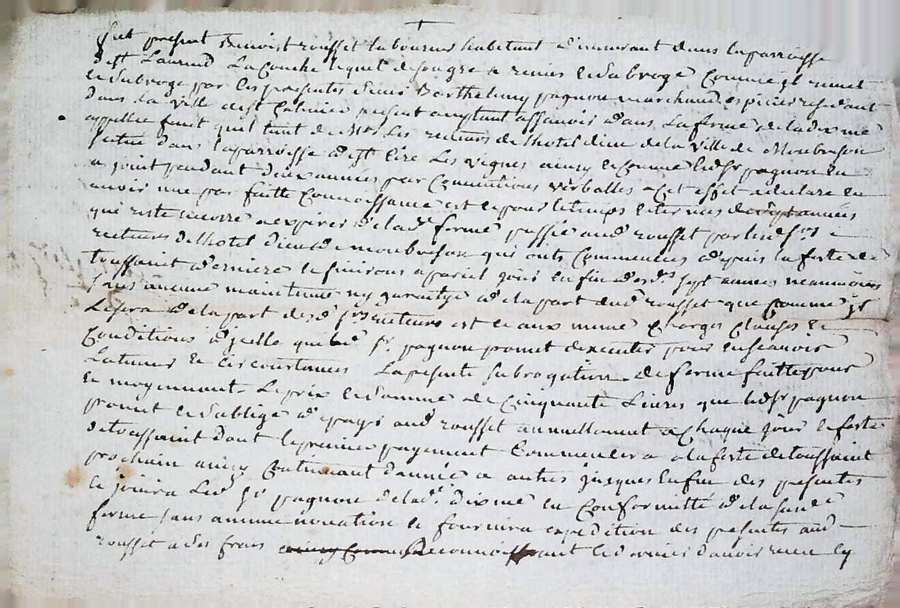 fut present Benoist rousset laboureur habitant et demeurant dans la parroisse
de st Laurend La Conche lequel de son gre a remis et subroge Comme jl remet
et subroge par les presentes sieur Barthelemy pagnon marchand espicier residant
dans la ville de st Galmier present acceptant assavoir dans La ferme de la dixme
appellee qu'il tient de Mrs Les recteurs de lhotel dieu de la ville de Montbrison
scitue dans la parroisse de st Cire Les vignes ainsy et Comme led sr pagnon en
a jouit pendant deux annees par Conventions verballes a Cet effet a declare en
avoir une parfaitte Connoissance et ce pour le temps et termes de annees
qui reste encore a expirer de lad ferme passee aud rousset par lesd srs
recteurs de lhotel dieu de monbrison qui ont Commencees depuis la feste de
toussaint derniere et finirons a pareil jour en fin desd sept annees neanmoins
sans aucune maintenue ny garantye de la part dud rousset que Comme jl
Le sera de la part desd srs recteurs et ce aux meme Charges Clauses et
Conditions dicelle que led sr pagnon promet dexecuter pour en scavoir
La teneur et circonstances La presente subrogation de ferme faitte pour
et moyennant Le prix et somme de Cinquante Livres que led sr pagnon
promet et soblige de payer aud rousset annuellement a Chaque jour et feste
de toussaint dont le premier payement Commencera a la feste de toussaint
prochain ainsy Continuant dannee a autres jusques en fin des presentes
et jouira Led sr pagnon de lad dixme en Conformitte de la sude
ferme sans aucune novation et fournira expedition des presentes aud
rousset a ses frais reconnoissant led dernier davoir receu cy